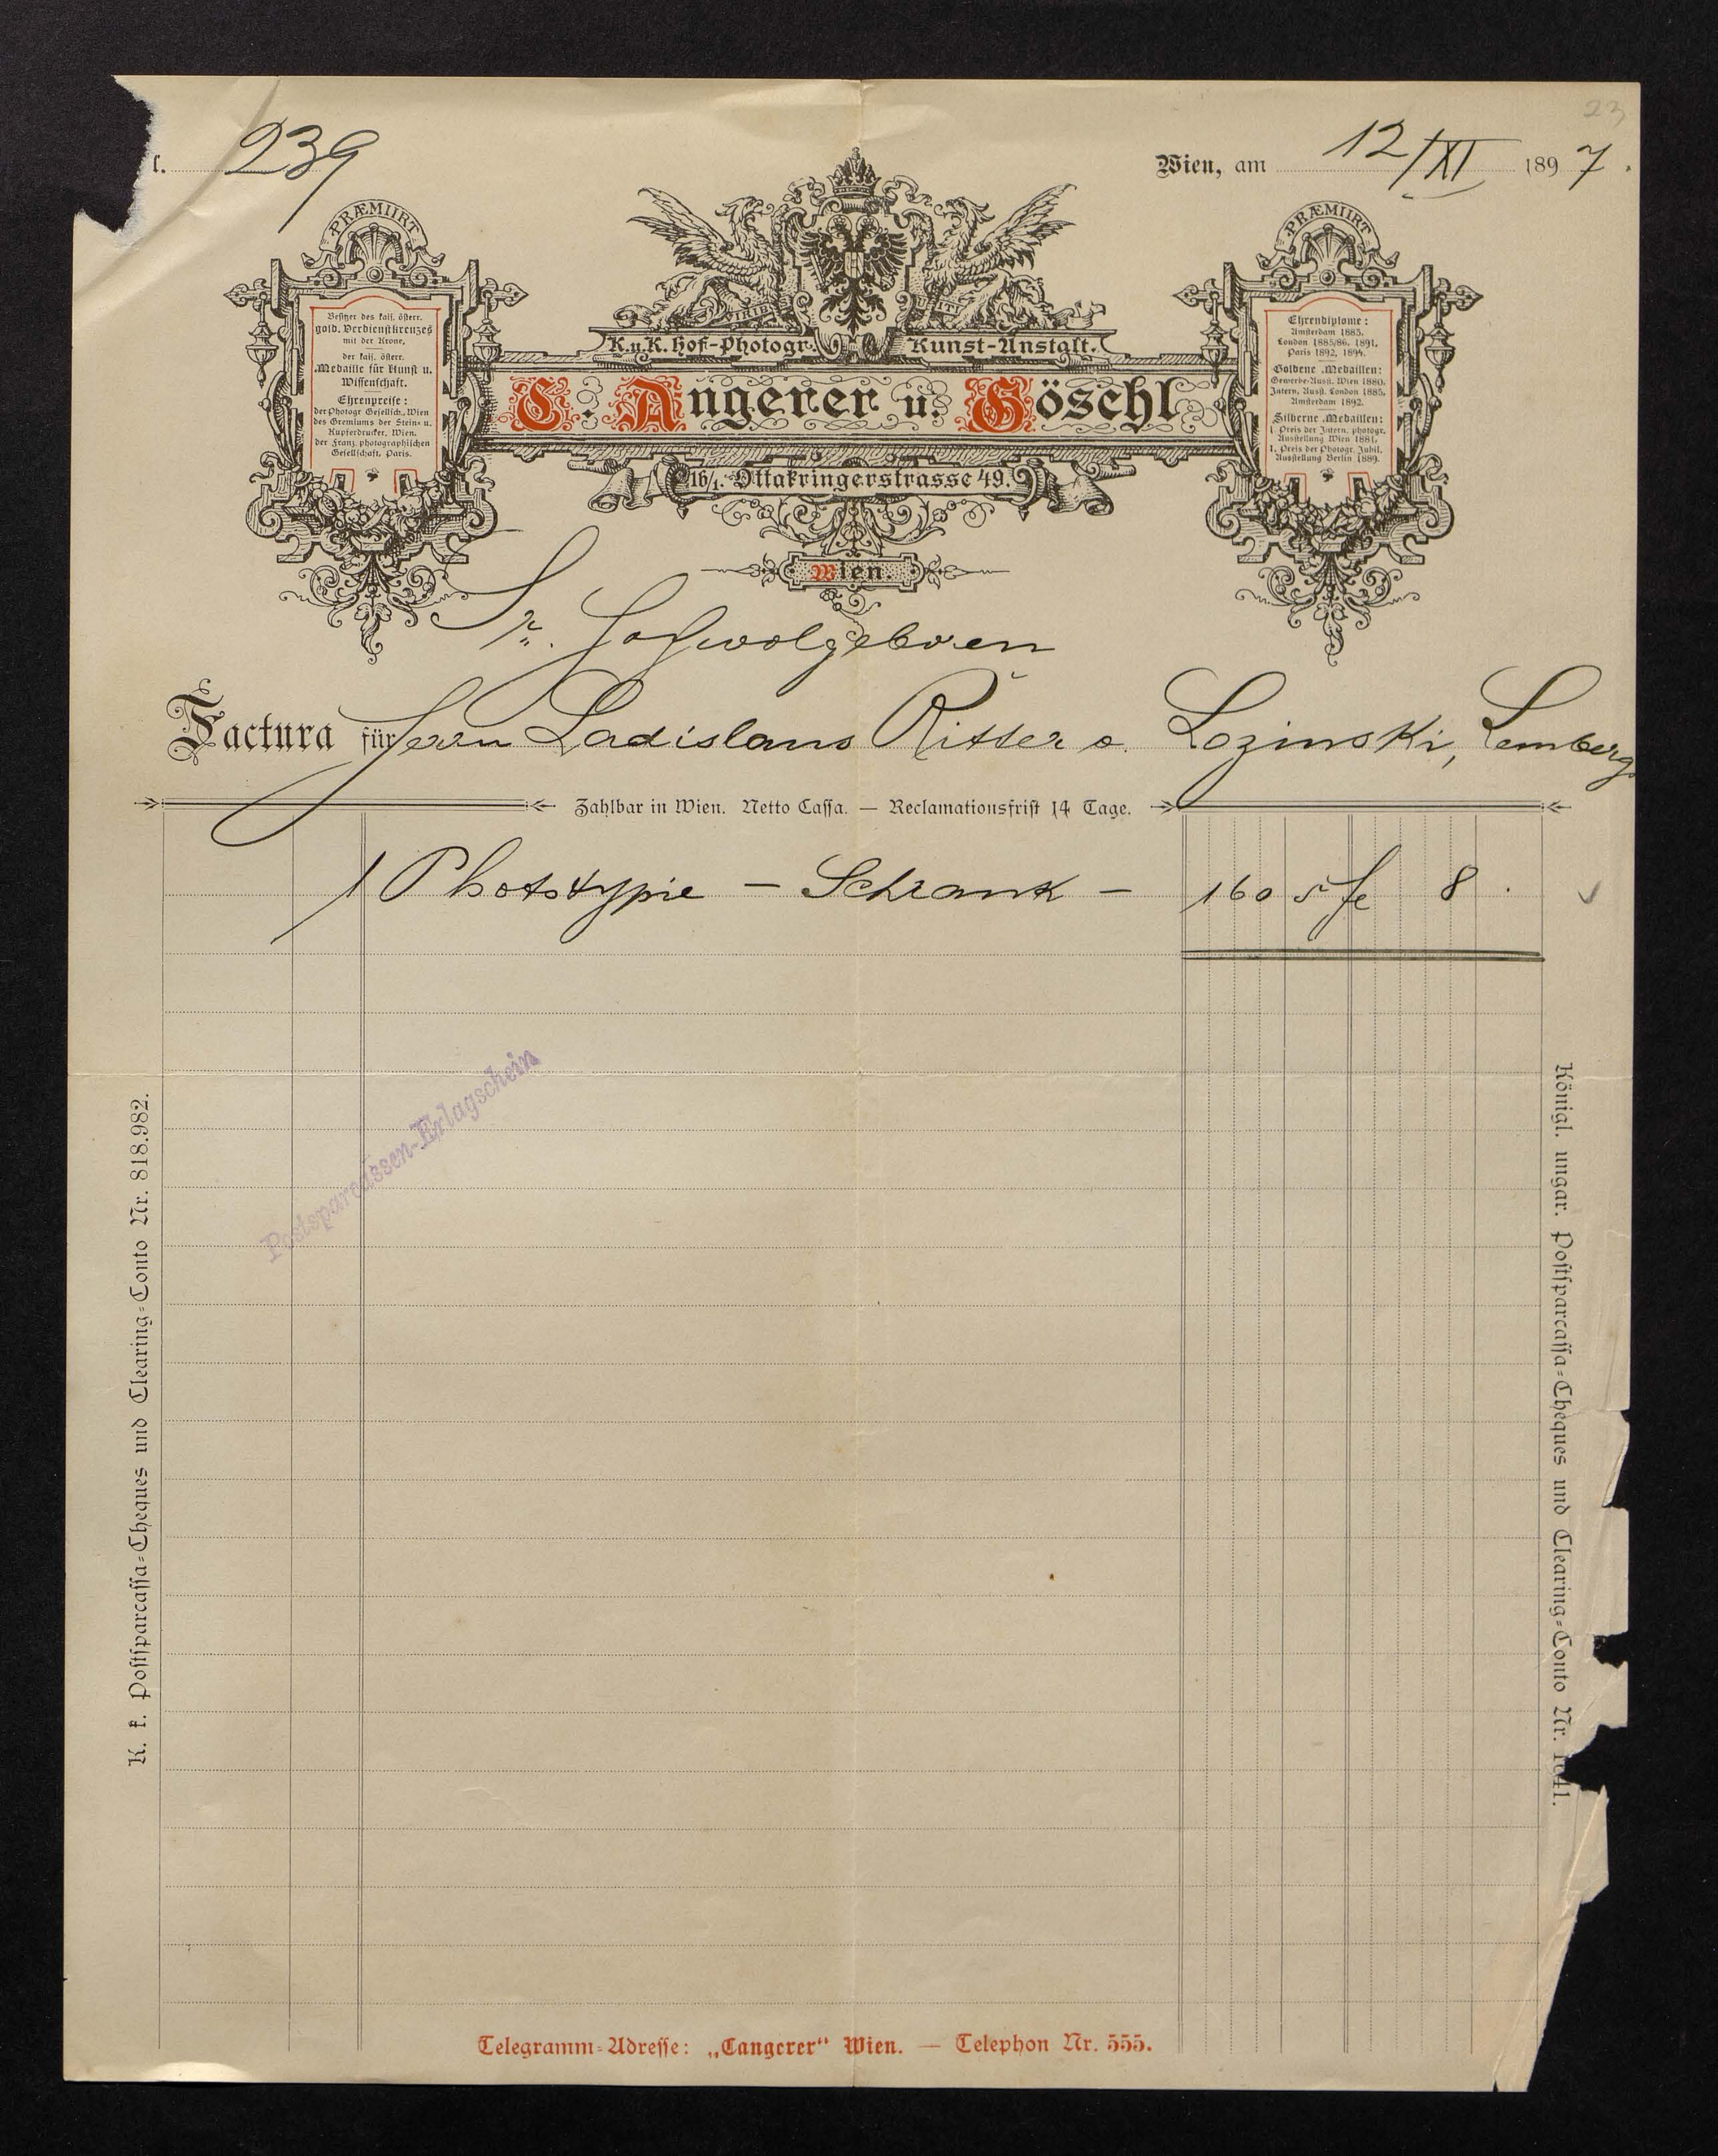 23
r. 239
Wien, am 12/XI 1897.
PRÆMIIRT
Besitzer des kais. österr.
gold. Verdienstkreuzes
mit der Krone,
der kais. österr.
Medaille für Kunst u.
Wissenschaft.
Ehrenpreise:
der Photogr. Gesellsch., Wien
des Gremiums der Stein- u.
Kupferdrucker, Wien.
der Franz. photographischen
Gesellschaft, Paris.
VIRIBUS
K.u.K. Hof-Photogr. Kunst-Anstalt.
C. Angerer u. Göschl
16/1. Ottakringerstrasse 49.
Wien.
PRÆMIIRT
Ehrendiplome:
Amsterdam 1883.
London 1885/86. 1891.
Paris 1892, 1894.
Goldene Medaillen:
Gewerbe-Ausst. Wien 1880.
Intern. Ausst. London 1885.
Amsterdam 1892.
Silberne Medaillen:
1. Preis der Intern. photogr.
Ausstellung Wien 1881,
1. Preis der Photogr. Jubil.
Ausstellung Berlin 1889.
Sr. Hochwolgeboren
Factura für Herrn Ladislaus Ritter v. Lozinski, Lemberg
Zahlbar in Wien. Netto Cassa. — Reclamationsfrist 14 Tage.
1 Phototypie – Schrank – 160 5 8 .
Postsparcassen-Erlagschein
K. k. Postsparcassa-Cheques und Clearing-Conto Nr. 818.982.
Königl. ungar. Postsparcassa-Cheques und Clearing-Conto Nr. 1641.
Telegramm-Adresse: „Cangerer“ Wien. — Telephon Nr. 555.